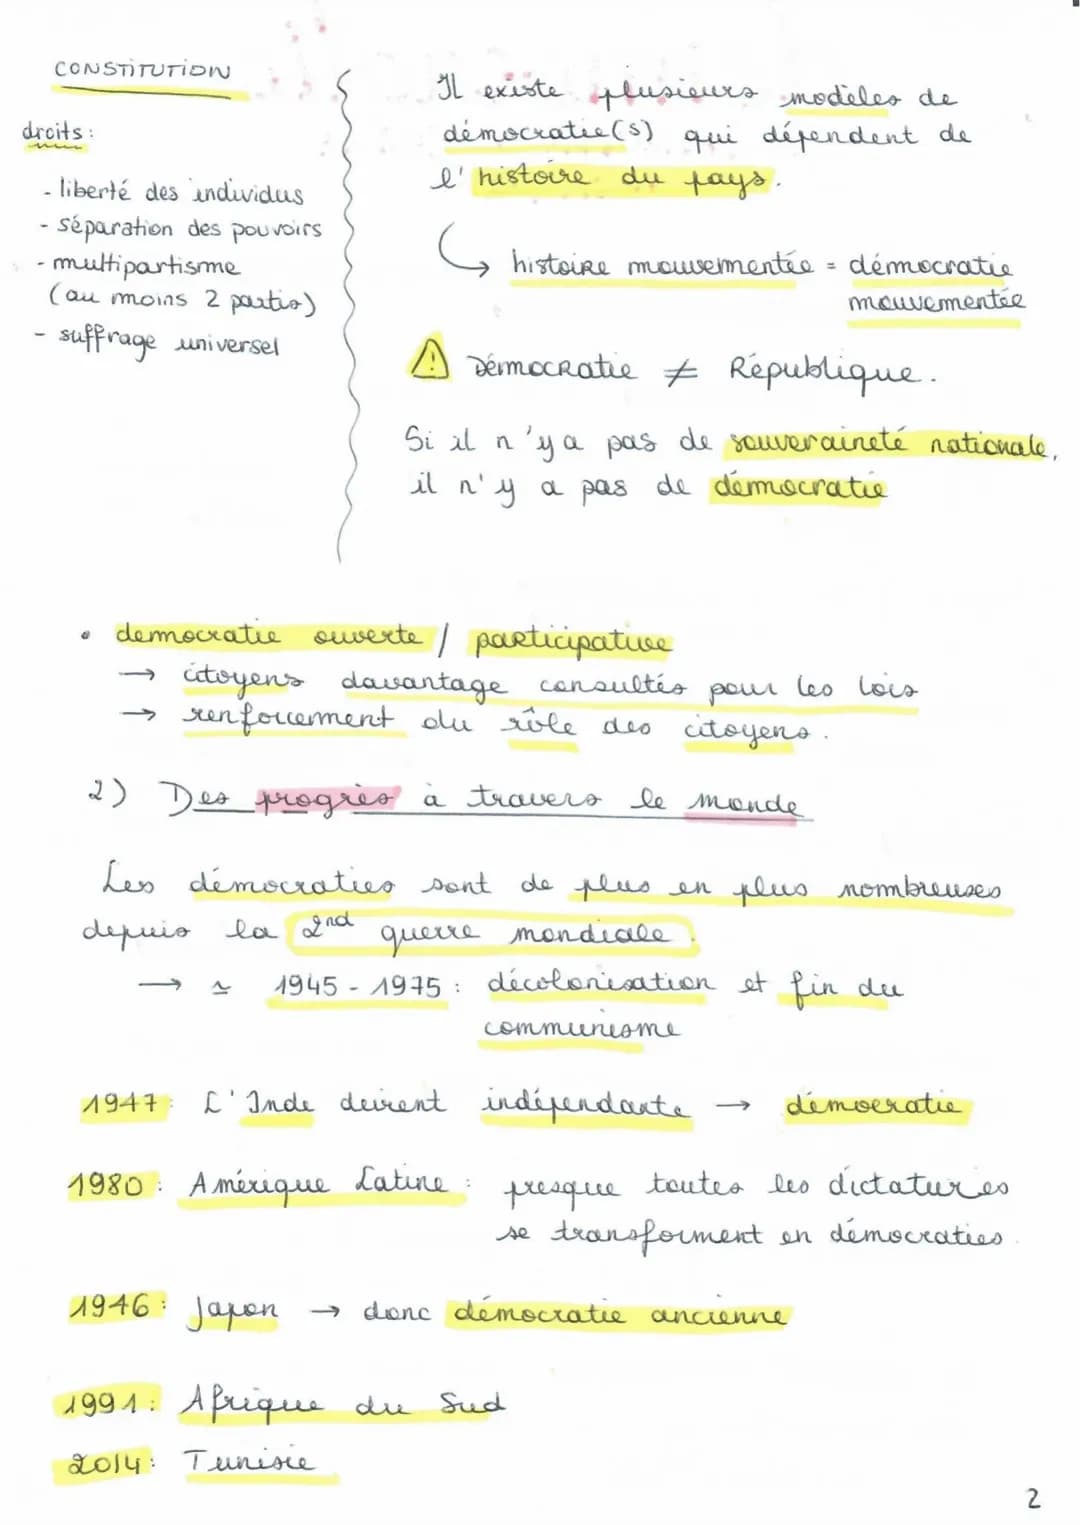 CONSTITUTION
droits :
- liberté des individus
- séparation des pouvoirs
- multipartisme
(au moins 2 partis)
- suffrage universel
Il existe plusieurs modèles de
démocratie(s) qui dépendent de
l'histoire du pays.
histoire mouvementée = démocratie
mouvementée
⚠ Démocratie ≠ République.
Si il n'y a pas de souveraineté nationale,
il n'y a pas de démocratie
• democratie ouverte / participative
→ citoyens davantage consultés pour les lois
→ renforcement du rôle des citoyens.
2) Des progrès à travers le monde
Les démocraties sont de plus en plus nombreuses
depuis la 2nd guerre mondiale.
→ ≃ 1945 - 1975 : décolonisation et fin du
communisme
1947 : L'Inde devient indépendante → démocratie
1980 : Amérique Latine : presque toutes les dictatures
se transforment en démocraties.
1946 : Japon → donc démocratie ancienne
1991 : Afrique du Sud
2014 : Tunisie
2